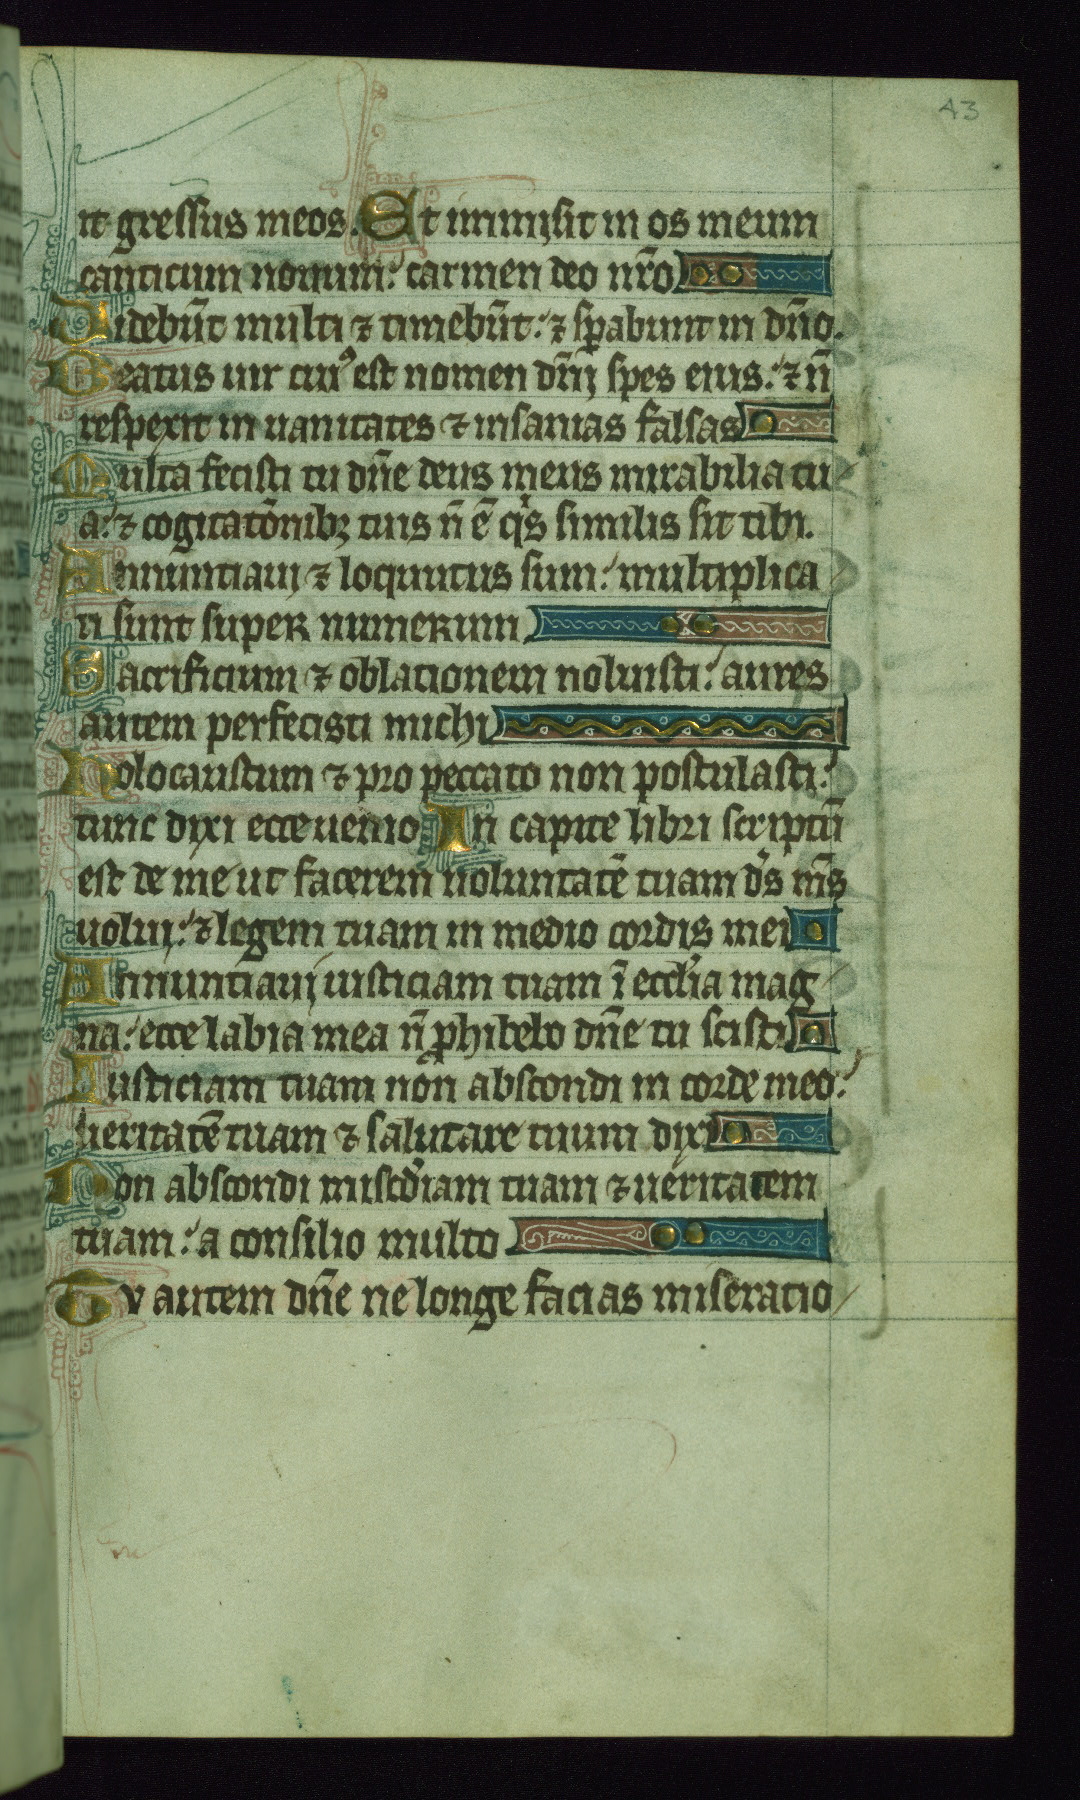 43
it gressus meos. Et immisit in os meum
canticum nouum: carmen deo nr̃o
Uidebũt multi ⁊ timebũt: ⁊ sꝑabunt in dño.
Beatus uir cuiꝰ est nomen dñi spes eius: ⁊ ñ
respexit in uanitates ⁊ insanias falsas
Multa fecisti tu dñe deus meus mirabilia tu
a: ⁊ cogitatõnibꝫ tuis ñ ẽ qͥs similis sit tibi.
Annuntiaui ⁊ loquutus sum: multiplica
ti sunt super numerum
Sacrificium ⁊ oblationem noluisti: aures
autem perfecisti michi
Holocaustum ⁊ pro peccato non postulasti:
tunc dixi ecce uenio In capite libri scriptũ
est de me ut facerem uoluntatẽ tuam ds̃ ms̃
uolui: ⁊ legem tuam in medio cordis mei
Annuntiaui iusticiam tuam ĩ eccl̃ia mag
na: ecce labia mea ñ ꝓhibebo dñe tu scisti
Iusticiam tuam non abscondi in corde meo:
ueritatẽ tuam ⁊ salutare tuum dixi
Non abscondi misc̃diam tuam ⁊ ueritatem
tuam: a consilio multo
Tv autem dñe ne longe facias miseratio